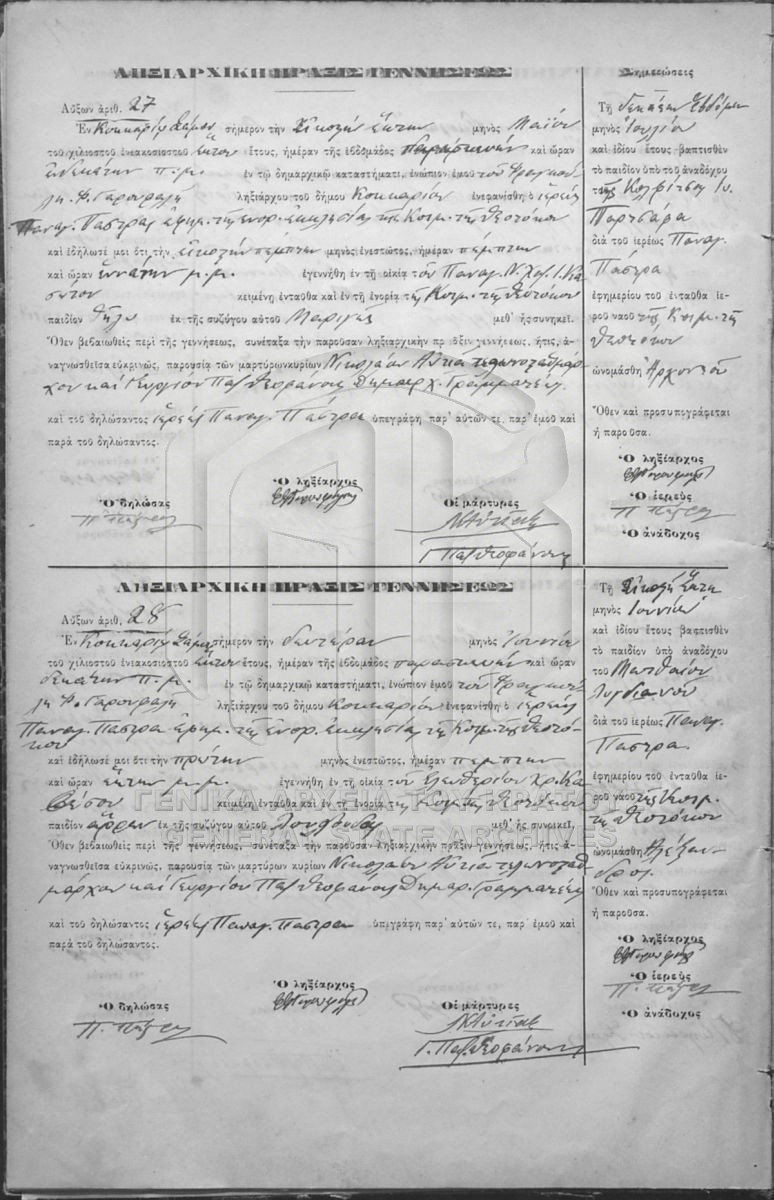 ΛΗΞΙΑΡΧΙΚΗ ΠΡΑΞΙΣ ΓΕΝΝΗΣΕΩΣ
Αὔξων ἀριθ. 27
Ἐν Κοκκαρίῳ Σάμου σήμερον τὴν Εἰκοστὴν ἕκτην μηνὸς Μαΐου
τοῦ χιλιοστοῦ ἐνεακοσιοστοῦ ἕκτου ἔτους, ἡμέραν τῆς ἑβδομάδος Παρασκευὴν καὶ ὥραν
ἑνδεκάτην π.μ. ἐν τῷ δημαρχικῷ καταστήματι, ἐνώπιον ἐμοῦ τοῦ
ληξιάρχου τοῦ δήμου Κοκκαρίου ἐνεφανίσθη ὁ ἱερεὺς
Παναγ. Πάστρας ἐφημ. τῆς ἐνορ. ἐκκλησίας τῆς Κοιμ. τῆς Θεοτόκου
καὶ ἐδήλωσέ μοι ὅτι τὴν εἰκοστὴν πέμπτην μηνὸς ἐνεστῶτος, ἡμέραν πέμπτην
καὶ ὥραν ἐννάτην μ.μ. ἐγεννήθη ἐν τῇ οἰκίᾳ τοῦ Παναγ. Ν. Χρ. Ι.
κειμένη ἐνταῦθα καὶ ἐν τῇ ἐνορίᾳ τῆς Κοιμ. τῆς Θεοτόκου
παιδίον θῆλυ ἐκ τῆς συζύγου αὐτοῦ Μαριγῶς μεθ' ἧς συνοικεῖ.
Ὅθεν βεβαιωθεὶς περὶ τῆς γεννήσεως, συνέταξα τὴν παροῦσαν ληξιαρχικὴν πρᾶξιν γεννήσεως, ἥτις, ἀ-
ναγνωσθεῖσα εὐκρινῶς, παρουσίᾳ τῶν μαρτύρων κυρίων Νικολάου
καὶ Γεωργίου Παπθεοφάνους Δημαρχ. Γραμματέως
καὶ τοῦ δηλώσαντος ἱερέως Παναγ. Πάστρα ὑπεγράφη παρ' αὐτῶν τε, παρ' ἐμοῦ καὶ
παρὰ τοῦ δηλώσαντος.
Ὁ ληξίαρχος
Ὁ δηλώσας
Οἱ μάρτυρες
Π. Πάστρας
Γ. Παπθεοφάνους
Σημειώσεις
Τῇ δεκάτῃ ἑβδόμῃ
μηνὸς Ἰουλίου
καὶ ἰδίου ἔτους βαπτισθὲν
τὸ παιδίον ὑπὸ τοῦ ἀναδόχου
διὰ τοῦ ἱερέως Παναγ.
Πάστρα
ἐφημερίου τοῦ ἐνταῦθα ἱε-
ροῦ ναοῦ τῆς Κοιμ. τῆς
Θεοτόκου
ὠνομάσθη
Ὅθεν καὶ προσυπογράφεται
ἡ παροῦσα.
Ὁ ληξίαρχος
Ὁ ἱερεὺς
Π. Πάστρας
Ὁ ἀνάδοχος
ΛΗΞΙΑΡΧΙΚΗ ΠΡΑΞΙΣ ΓΕΝΝΗΣΕΩΣ
Αὔξων ἀριθ. 28
Ἐν Κοκκαρίῳ Σάμου σήμερον τὴν δευτέραν μηνὸς Ἰουνίου
τοῦ χιλιοστοῦ ἐνεακοσιοστοῦ ἕκτου ἔτους, ἡμέραν τῆς ἑβδομάδος παρασκευὴν καὶ ὥραν
δεκάτην π.μ. ἐν τῷ δημαρχικῷ καταστήματι, ἐνώπιον ἐμοῦ τοῦ
ληξιάρχου τοῦ δήμου Κοκκαρίου ἐνεφανίσθη ὁ ἱερεὺς
Παναγ. Πάστρα ἐφημ. τῆς ἐνορ. ἐκκλησίας τῆς Κοιμ. τῆς Θεοτό-
κου
καὶ ἐδήλωσέ μοι ὅτι τὴν πρώτην μηνὸς ἐνεστῶτος, ἡμέραν πέμπτην
καὶ ὥραν ἕκτην μ.μ. ἐγεννήθη ἐν τῇ οἰκίᾳ τοῦ Ἐλευθερίου Χρ.
κειμένη ἐνταῦθα καὶ ἐν τῇ ἐνορίᾳ τῆς Κοιμ. τῆς Θεοτόκου
παιδίον ἄρρεν ἐκ τῆς συζύγου αὐτοῦ Λουλούδας μεθ' ἧς συνοικεῖ,
Ὅθεν βεβαιωθεὶς περὶ τῆς γεννήσεως, συνέταξα τὴν παροῦσαν ληξιαρχικὴν πρᾶξιν γεννήσεως, ἥτις ἀ-
ναγνωσθεῖσα εὐκρινῶς, παρουσίᾳ τῶν μαρτύρων κυρίων Νικολάου
καὶ Γεωργίου Παπθεοφάνους Δημαρ. Γραμματέως
καὶ τοῦ δηλώσαντος ἱερέως Παναγ. Πάστρα ὑπεγράφη παρ' αὐτῶν τε, παρ' ἐμοῦ καὶ
παρὰ τοῦ δηλώσαντος.
Ὁ ληξίαρχος
Ὁ δηλώσας
Οἱ μάρτυρες
Π. Πάστρας
Γ. Παπθεοφάνους
Τῇ Εἰκοστῇ ἕκτῃ
μηνὸς Ἰουνίου
καὶ ἰδίου ἔτους βαπτισθὲν
τὸ παιδίον ὑπὸ τοῦ ἀναδόχου
τοῦ Ματθαίου
διὰ τοῦ ἱερέως Παναγ.
Πάστρα.
ἐφημερίου τοῦ ἐνταῦθα ἱε-
ροῦ ναοῦ τῆς Κοιμ.
τῆς Θεοτόκου
ὠνομάσθη Ἀλέξαν-
δρος.
Ὅθεν καὶ προσυπογράφεται
ἡ παροῦσα.
Ὁ ληξίαρχος
Ὁ ἱερεὺς
Π. Πάστρας
Ὁ ἀνάδοχος
ΓΕΝΙΚΑ ΑΡΧΕΙΑ ΤΟΥ ΚΡΑΤΟΥΣ
GENERAL STATE ARCHIVES